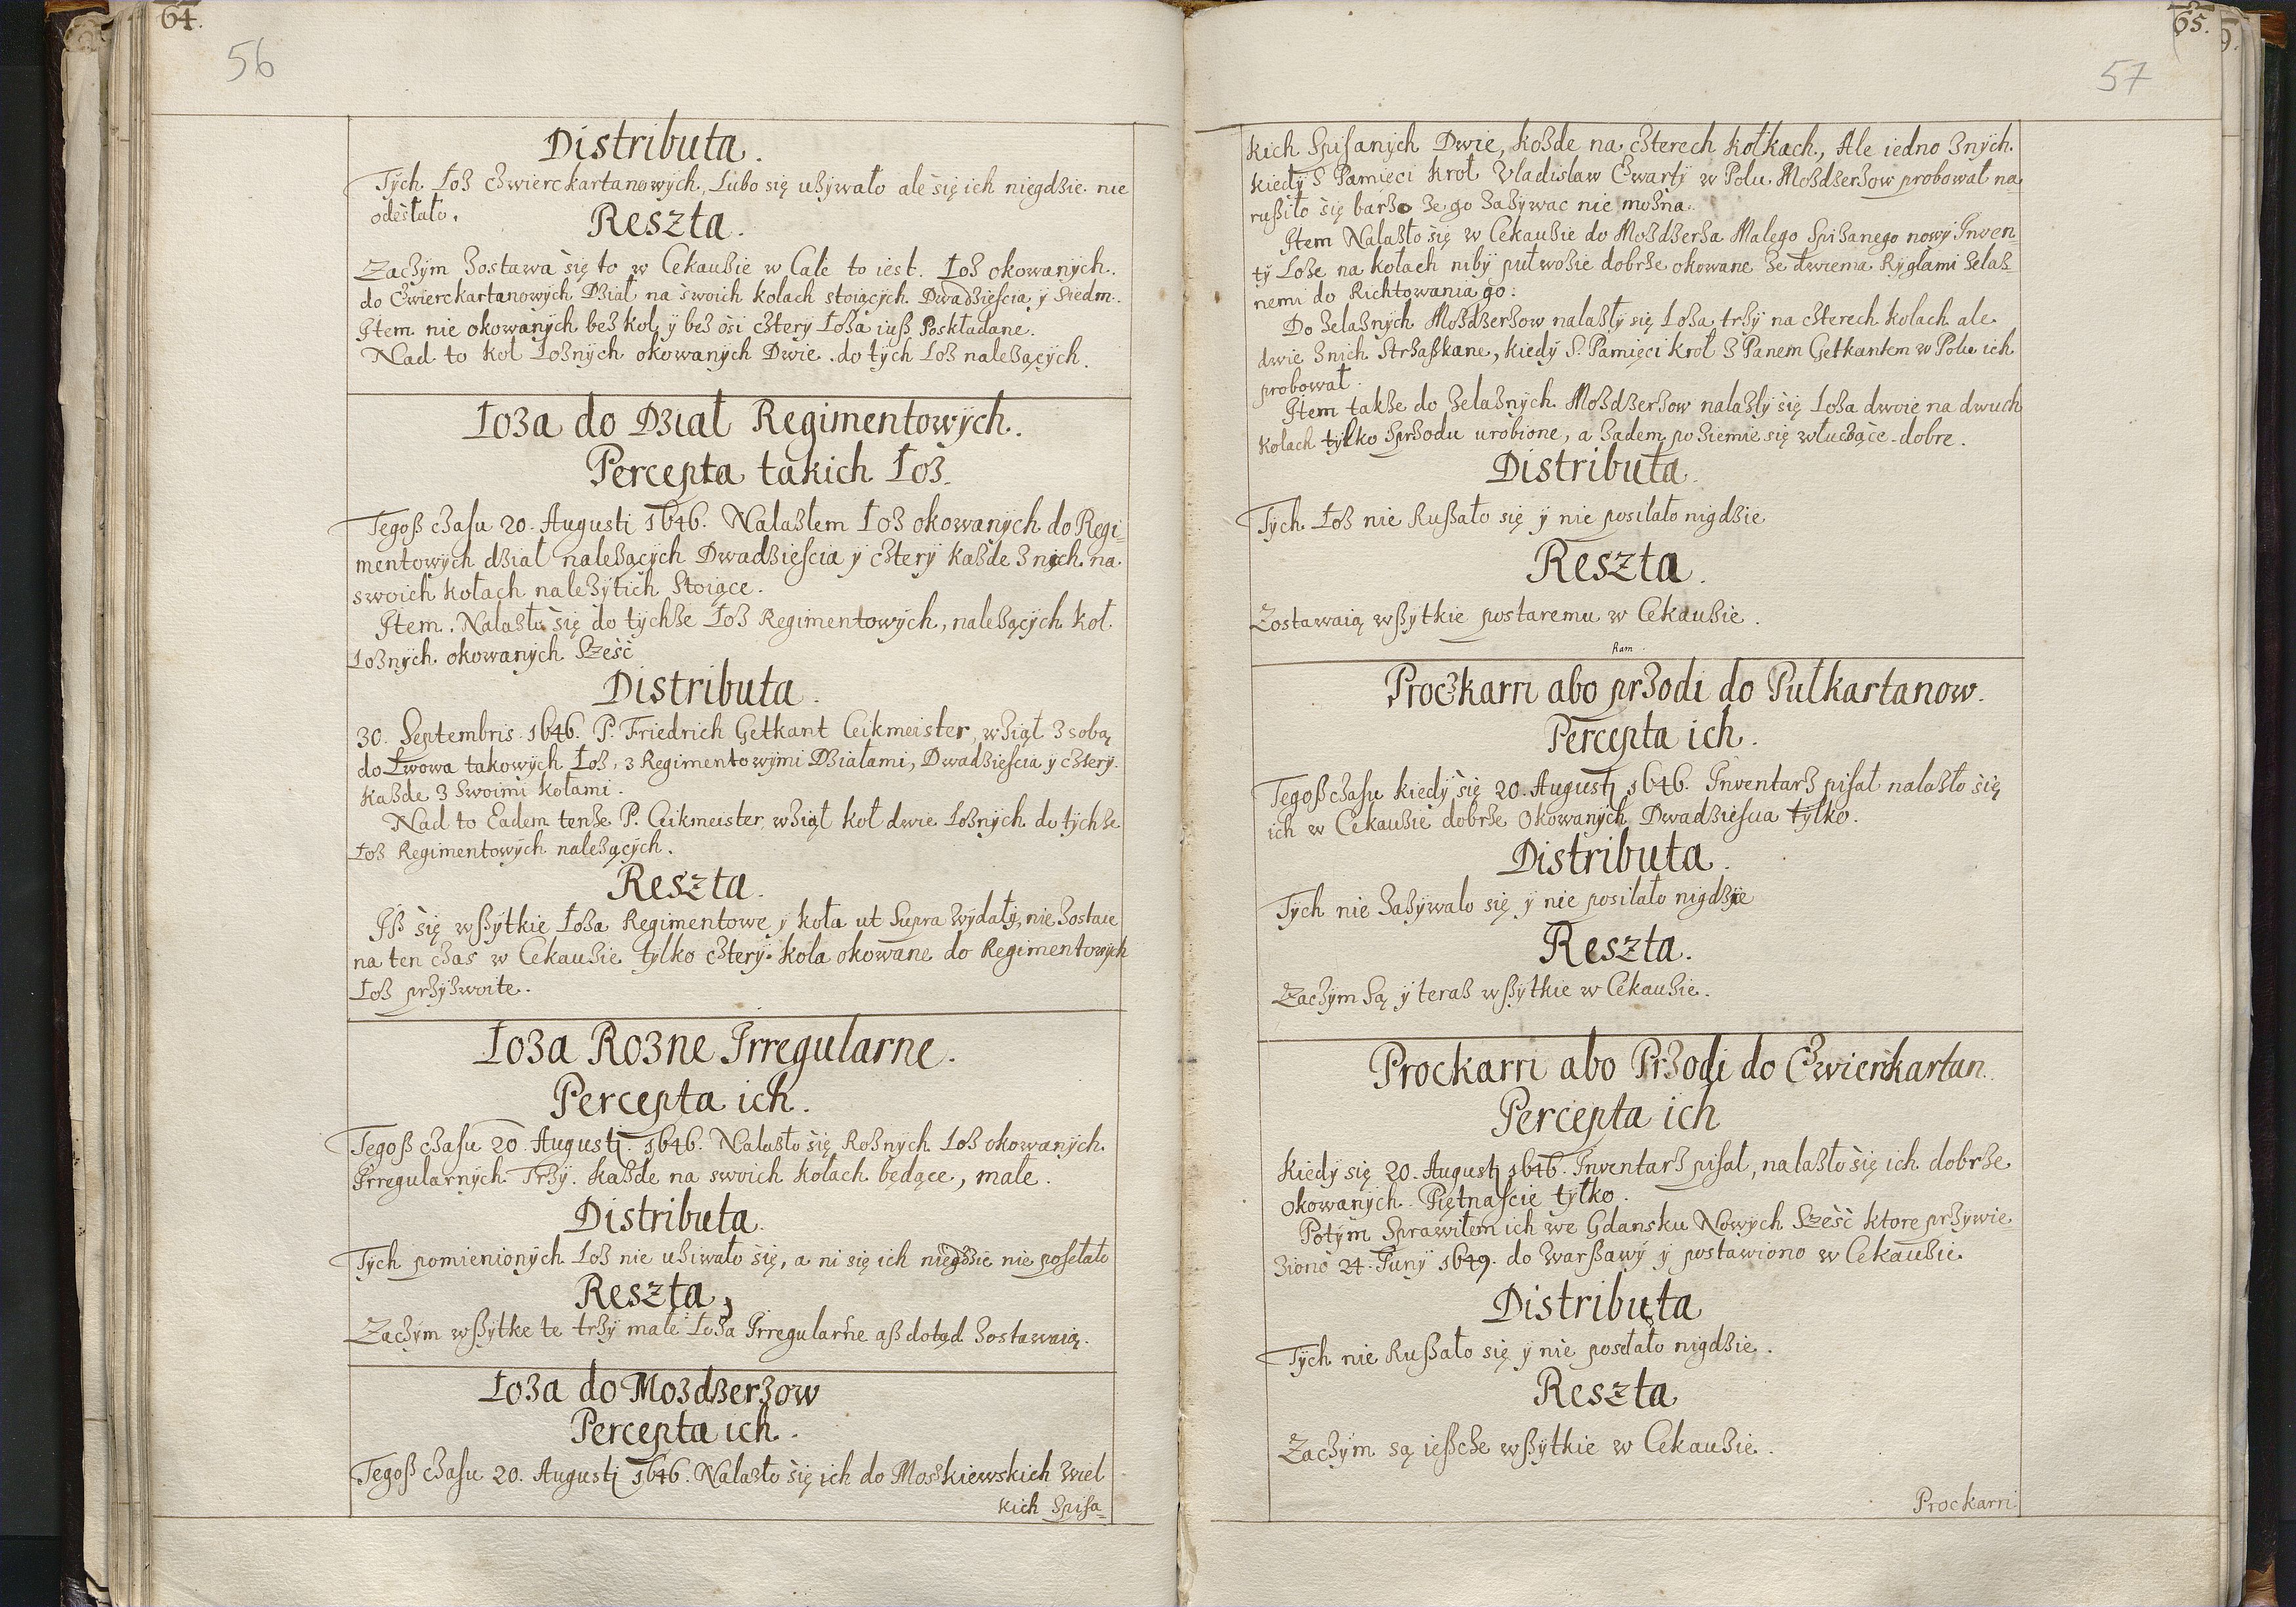 64.
56
Distributa.
Tych Łoz czwierckartanowych, Lubo się używało ale się ich niegdzie nie
odesłało.
Reszta.
Zaczym zostawa się to w Cekauzie w Cale to iest. Łoz okowanych.
do Cwierckartanowych Dział na swoich kolach stoiących. Dwadzieścia y Siedm.
Item nie okowanych bez koł y bez osi cztery Łoża iuß Poskładane.
Nad to koł Łoznych okowanych Dwie do tych Łoz nalezących.
Łoza do Dział Regimentowych.
Percepta takich Łoz.
Tegoß czasu 20. Augusti 1646. Nalazłem Łoz okowanych do Regi=
mentowych dział nalezących Dwadzieścia y cztery każde z nich na
swoich kołach nalezytich Stoiące.
Item. Nalazło się do tychże Łoz Regimentowych, nalezących koł
Łoznych okowanych Sześć
Distributa.
30. Septembris. 1646. P. Friedrich Getkant Ceikmeister, wziął z sobą
do Lwowa takowych Łoz, z Regimentowymi Działami, Dwadzieścia y cztery.
każde z Swoimi kołami.
Nad to Eadem tenże P. Ceikmeister, wziął koł dwie Łoznych do tychże
Łoz Regimentowych nalezących.
Reszta.
Iß się wßytkie Łoża Regimentowe y koła ut Supra wydały, nie zostaie
na ten czas w Cekauzie tylko cztery koła okowane do Regimentowych
Łoz przyzwoite.
Łoza Rozne Irregularne.
Percepta ich.
Tegoß czasu 20. Augustj. 1646. Nalazło się Roznych Łoz okowanych.
Irregularnych Trzy. każde na swoich kołach będące, małe.
Distributa.
Tych pomienionych Łoz nie uziwało się, a ni się ich niegdzie nie posełało
Reszta,
Zaczym wßytke te trzy małe Łoża Irregularne aß dotąd zostawaią.
Łoza do Mozdzerzow
Percepta ich.
Tegoß czasu 20. Augustj 1646. Nalazło się ich do Moskiewskich Wiel
kich Spiża=
65.
57
kich Spiżanych Dwie, kożde na czterech kołkach, Ale iedno znych.
kiedy S Pamięci Krol Vladislaw Czwarty w Polu Mozdzerzow probował na
rußiło się barzo że go zażywac nie można.
Item Nalazło się w Cekauzie do Mozdzerza Malego Spiżanego nowy Inven=
ty Loże na kołach niby pułwozie dobrze okowane ze dwiema Ryglami żelaz
nemi do Richtowania go.
Do żelaznych Mozdzerzow nalazły się Łoża trzy na czterech kolach ale
dwie z nich Strzaßkane, kiedy S. Pamięci Krol z Panem Getkantem w Polu ich
probował.
Item także do żelaznych Mozdzerzow nalazły się Łoża dwoie na dwuch
kolach tylko Sprzodu urobione, a zadem po ziemie się włuczące dobre.
Distributa.
Tych Łoz nie Rußało się y nie posiłało nigdzie
Reszta.
Zostawaią wßytkie postaremu w Cekauzie.
Ram
Proczkarri abo przodi do Pułkartanow.
Percepta ich.
Tegoß czasu kiedy się 20. Augustj 1646. Inventarz pisał nalazło się
ich w Cekauzie dobrze Okowanych Dwadzieścia tylko.
Distributa.
Tych nie zażywało się y nie posiłało nigdzie
Reszta.
Zaczym Są y teraz wßytkie w Cekauzie.
Prockarri abo Przodi do Czwierckartan.
Percepta ich
Kiedy się 20. Augustj 1646. Inventarz pisał, nalazło się ich dobrze
Okowanych Piętnaście tylko.
Potym Sprawiłem ich we Gdansku Nowych Sześć ktore przywie
ziono 24. Juny 1649. do Warßawy y postawiono w Cekauzie
Distributa
Tych nie Rußało się y nie posełało nigdzie.
Reszta
Zaczym są ießcze wßytkie w Cekauzie.
Prockarri